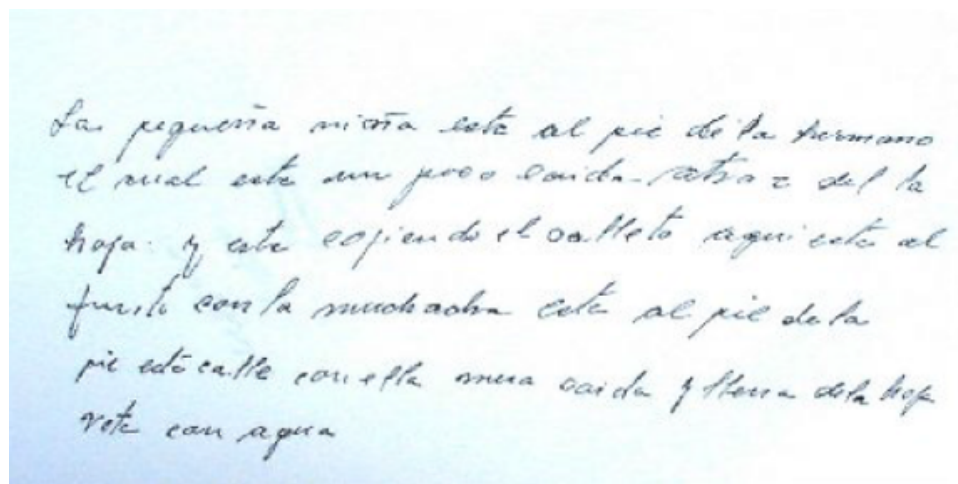 La pequeña niña está al pie de la hermano
el cual esta un poco caida atraz del la
hoja y esta cogiendo el calleto aqui está al
junto con la muchacha está al pie de la
pie está calle con ella mesa caida y llena dela hoja
rota con agua